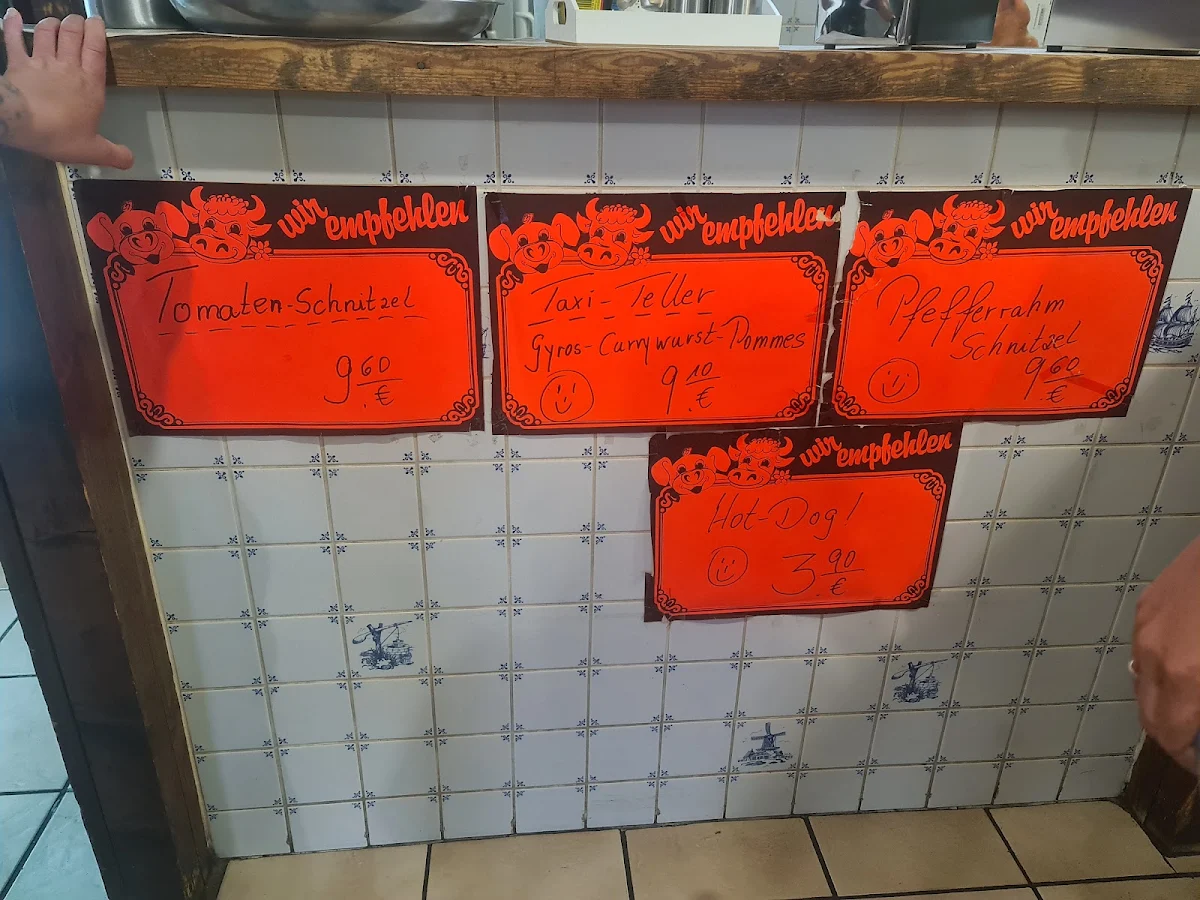 wir empfehlen
Tomaten-Schnitzel
9 60
€
wir empfehlen
Taxi-Teller
Gyros-Currywurst-Pommes
9 10
€
wir empfehlen
Pfefferrahm
Schnitzel
9 60
€
wir empfehlen
Hot-Dog!
3 90
€